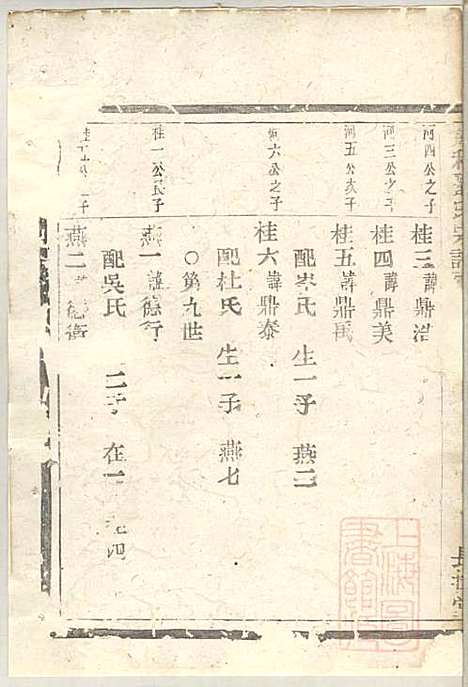 河四公之子
桂三諱鼎浩
河三公之子
桂四諱鼎美
河五公次子
桂五諱鼎禹
配岑氏 生一子 燕二
河六公之子
桂六諱鼎泰
配杜氏 生一子 燕七
○第九世
桂一公長子
燕一諱德行
配吳氏 二子 在一
燕二諱德衛
上海圖書館